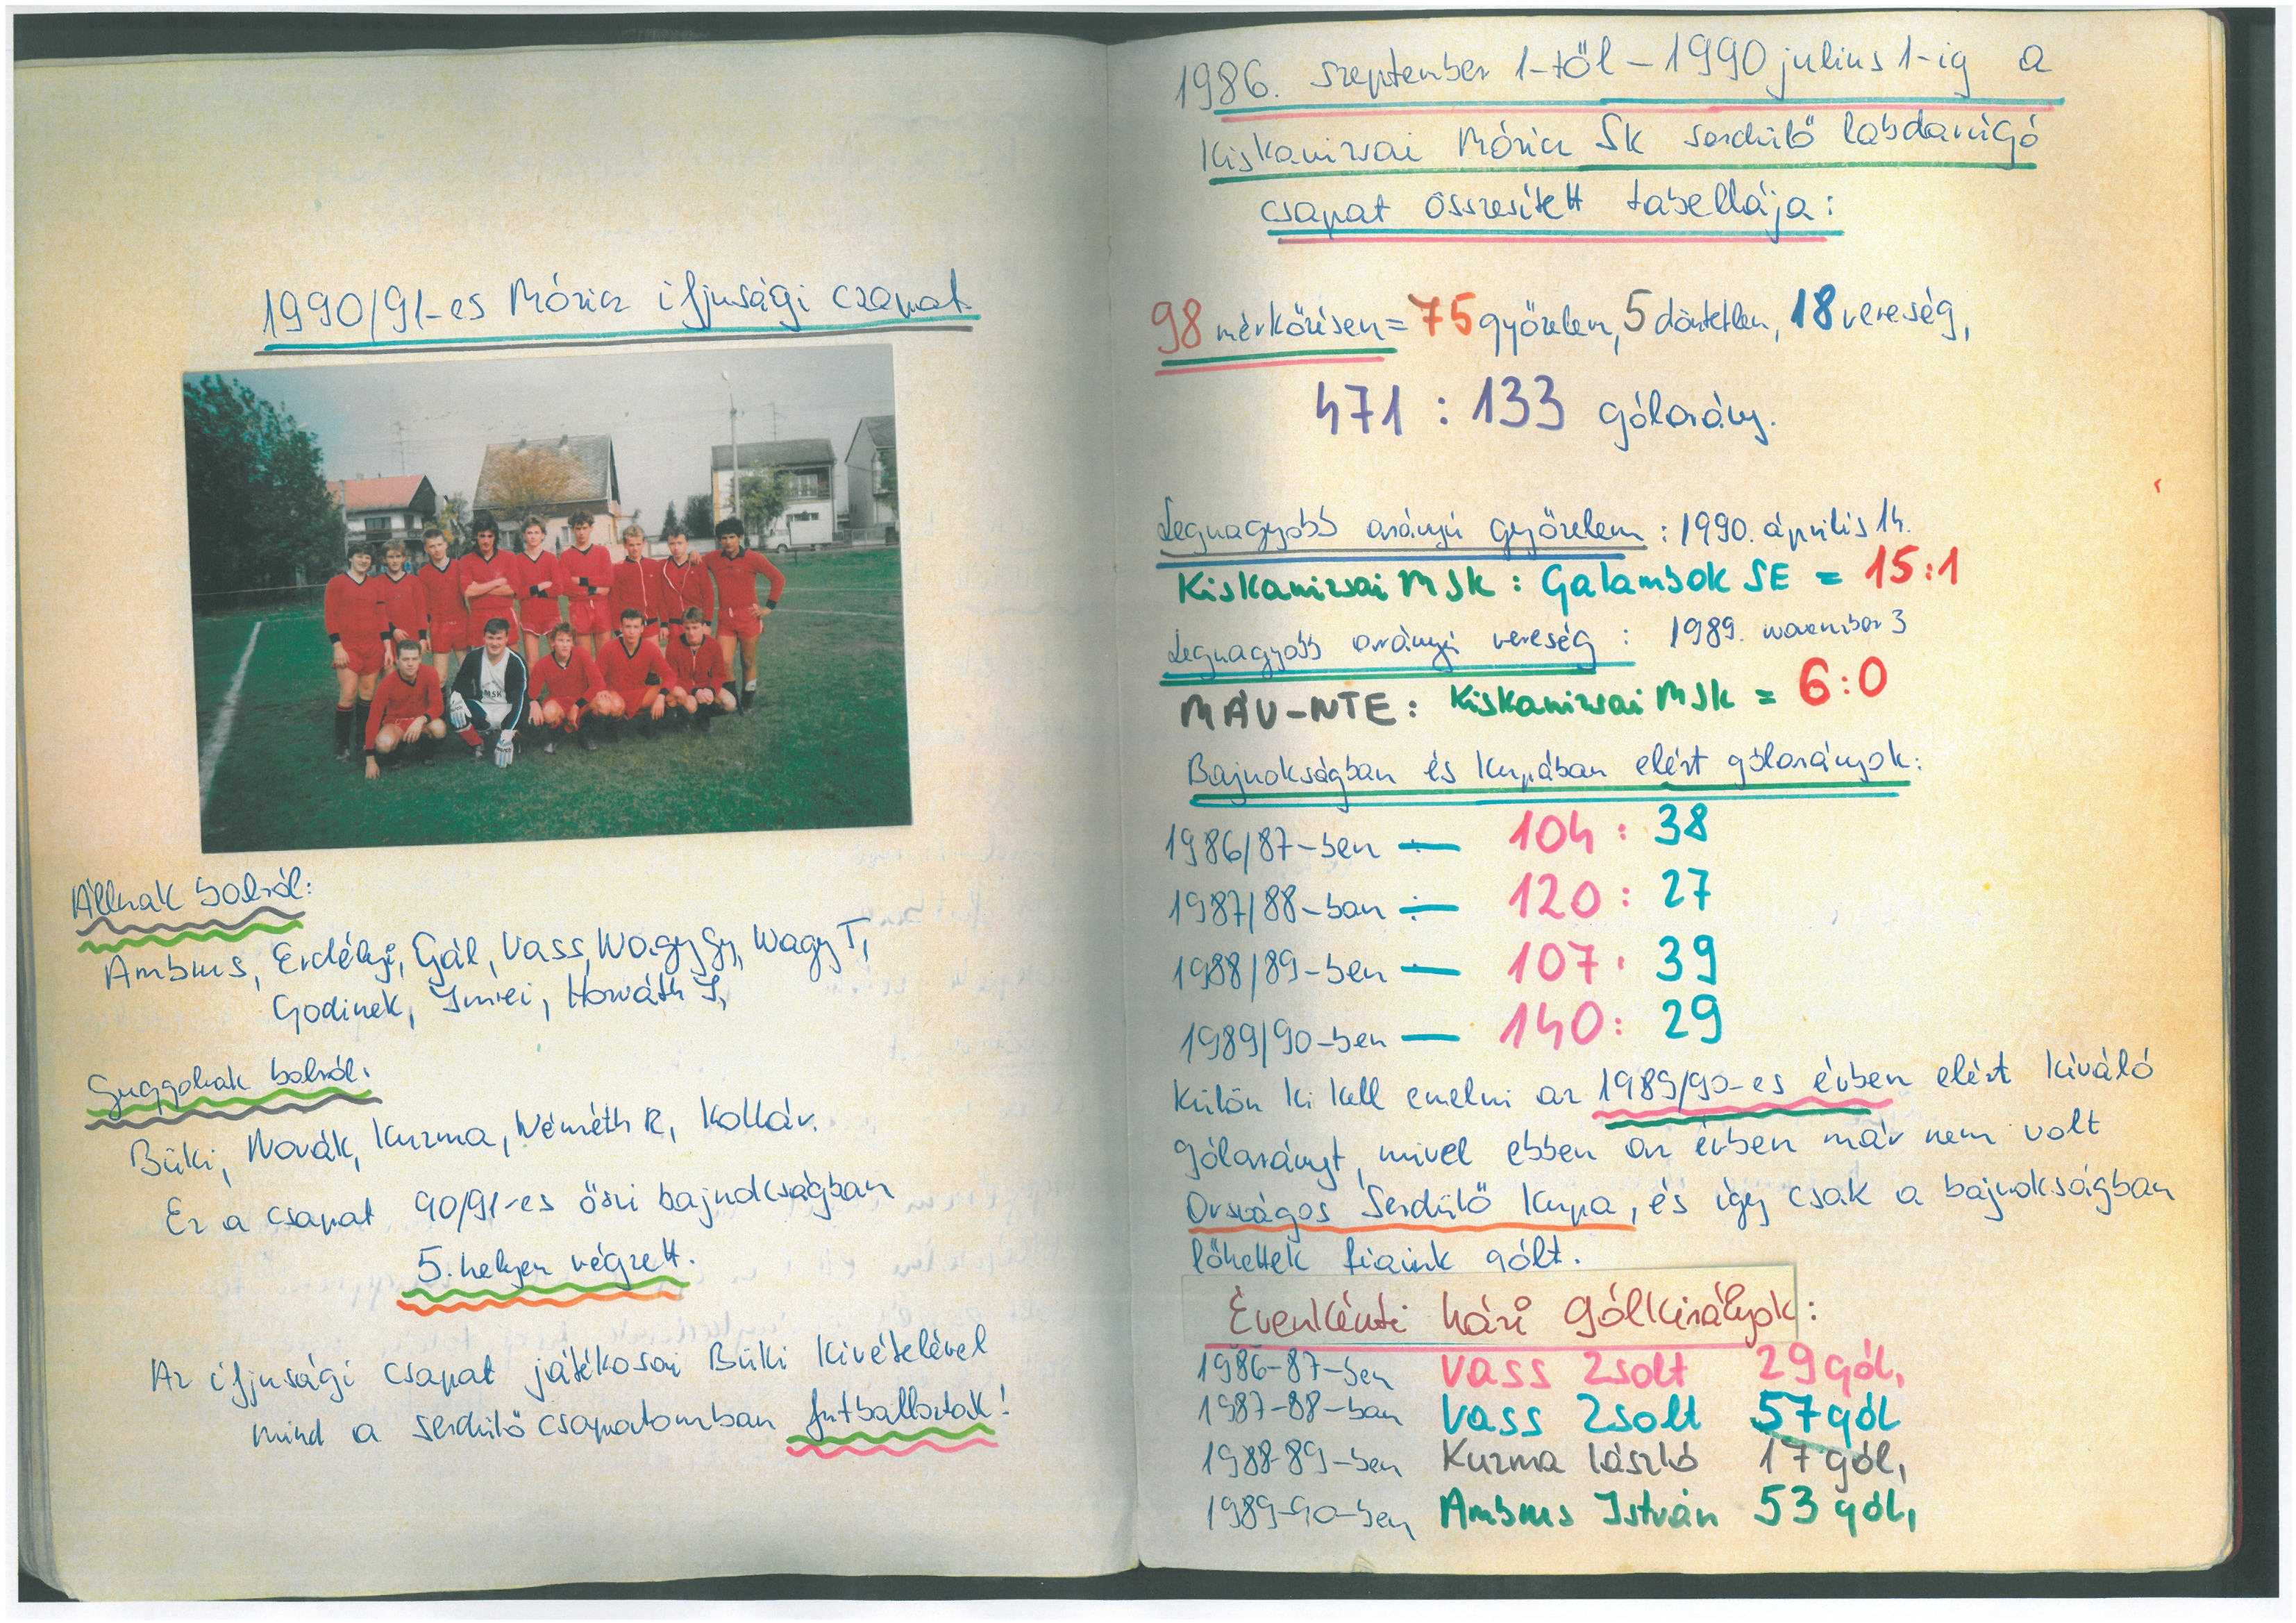 1990/91-es Móricz ifjusági csapat
Állnak balról:
Ambrus, Erdélyi, Gál, Vass, Nagy Gy, Nagy T,
Godinek, Imrei, Horváth I,
Guggolnak balról:
Büki, Novák, Kuzma, Németh R, Kollár.
Ez a csapat 90/91-es őszi bajnokságban
5. helyen végzett.
Az ifjusági csapat játékosai Büki kivételével
mind a serdülő csapatomban futballoztak!
MSK
1986. szeptember 1-től – 1990 julius 1-ig a
Kiskanizsai Móricz SK serdülő labdarúgó
csapat összesített tabellája:
98 mérkőzésen = 75 győzelem, 5 döntetlen, 18 vereség,
471 : 133 gólarány.
Legnagyobb arányú győzelem : 1990. április 14.
Kiskanizsai MSK : Galambok SE = 15:1
Legnagyobb arányú vereség : 1989. november 3
MÁV-NTE : Kiskanizsai MSK = 6:0
Bajnokságban és Kupában elért gólarányok:
1986/87-ben — 104 : 38
1987/88-ban — 120 : 27
1988/89-ben — 107 : 39
1989/90-ben — 140 : 29
Külön ki kell emelni az 1989/90-es évben elért kiváló
gólarányt, mivel ebben az évben már nem volt
Országos Serdülő Kupa, és így csak a bajnokságban
lőhettek fiaink gólt.
Évenkénti házi gólkirályok:
1986-87-ben Vass Zsolt 29 gól,
1987-88-ban Vass Zsolt 57 gól
1988-89-ben Kuzma László 17 gól,
1989-90-ben Ambrus István 53 gól,